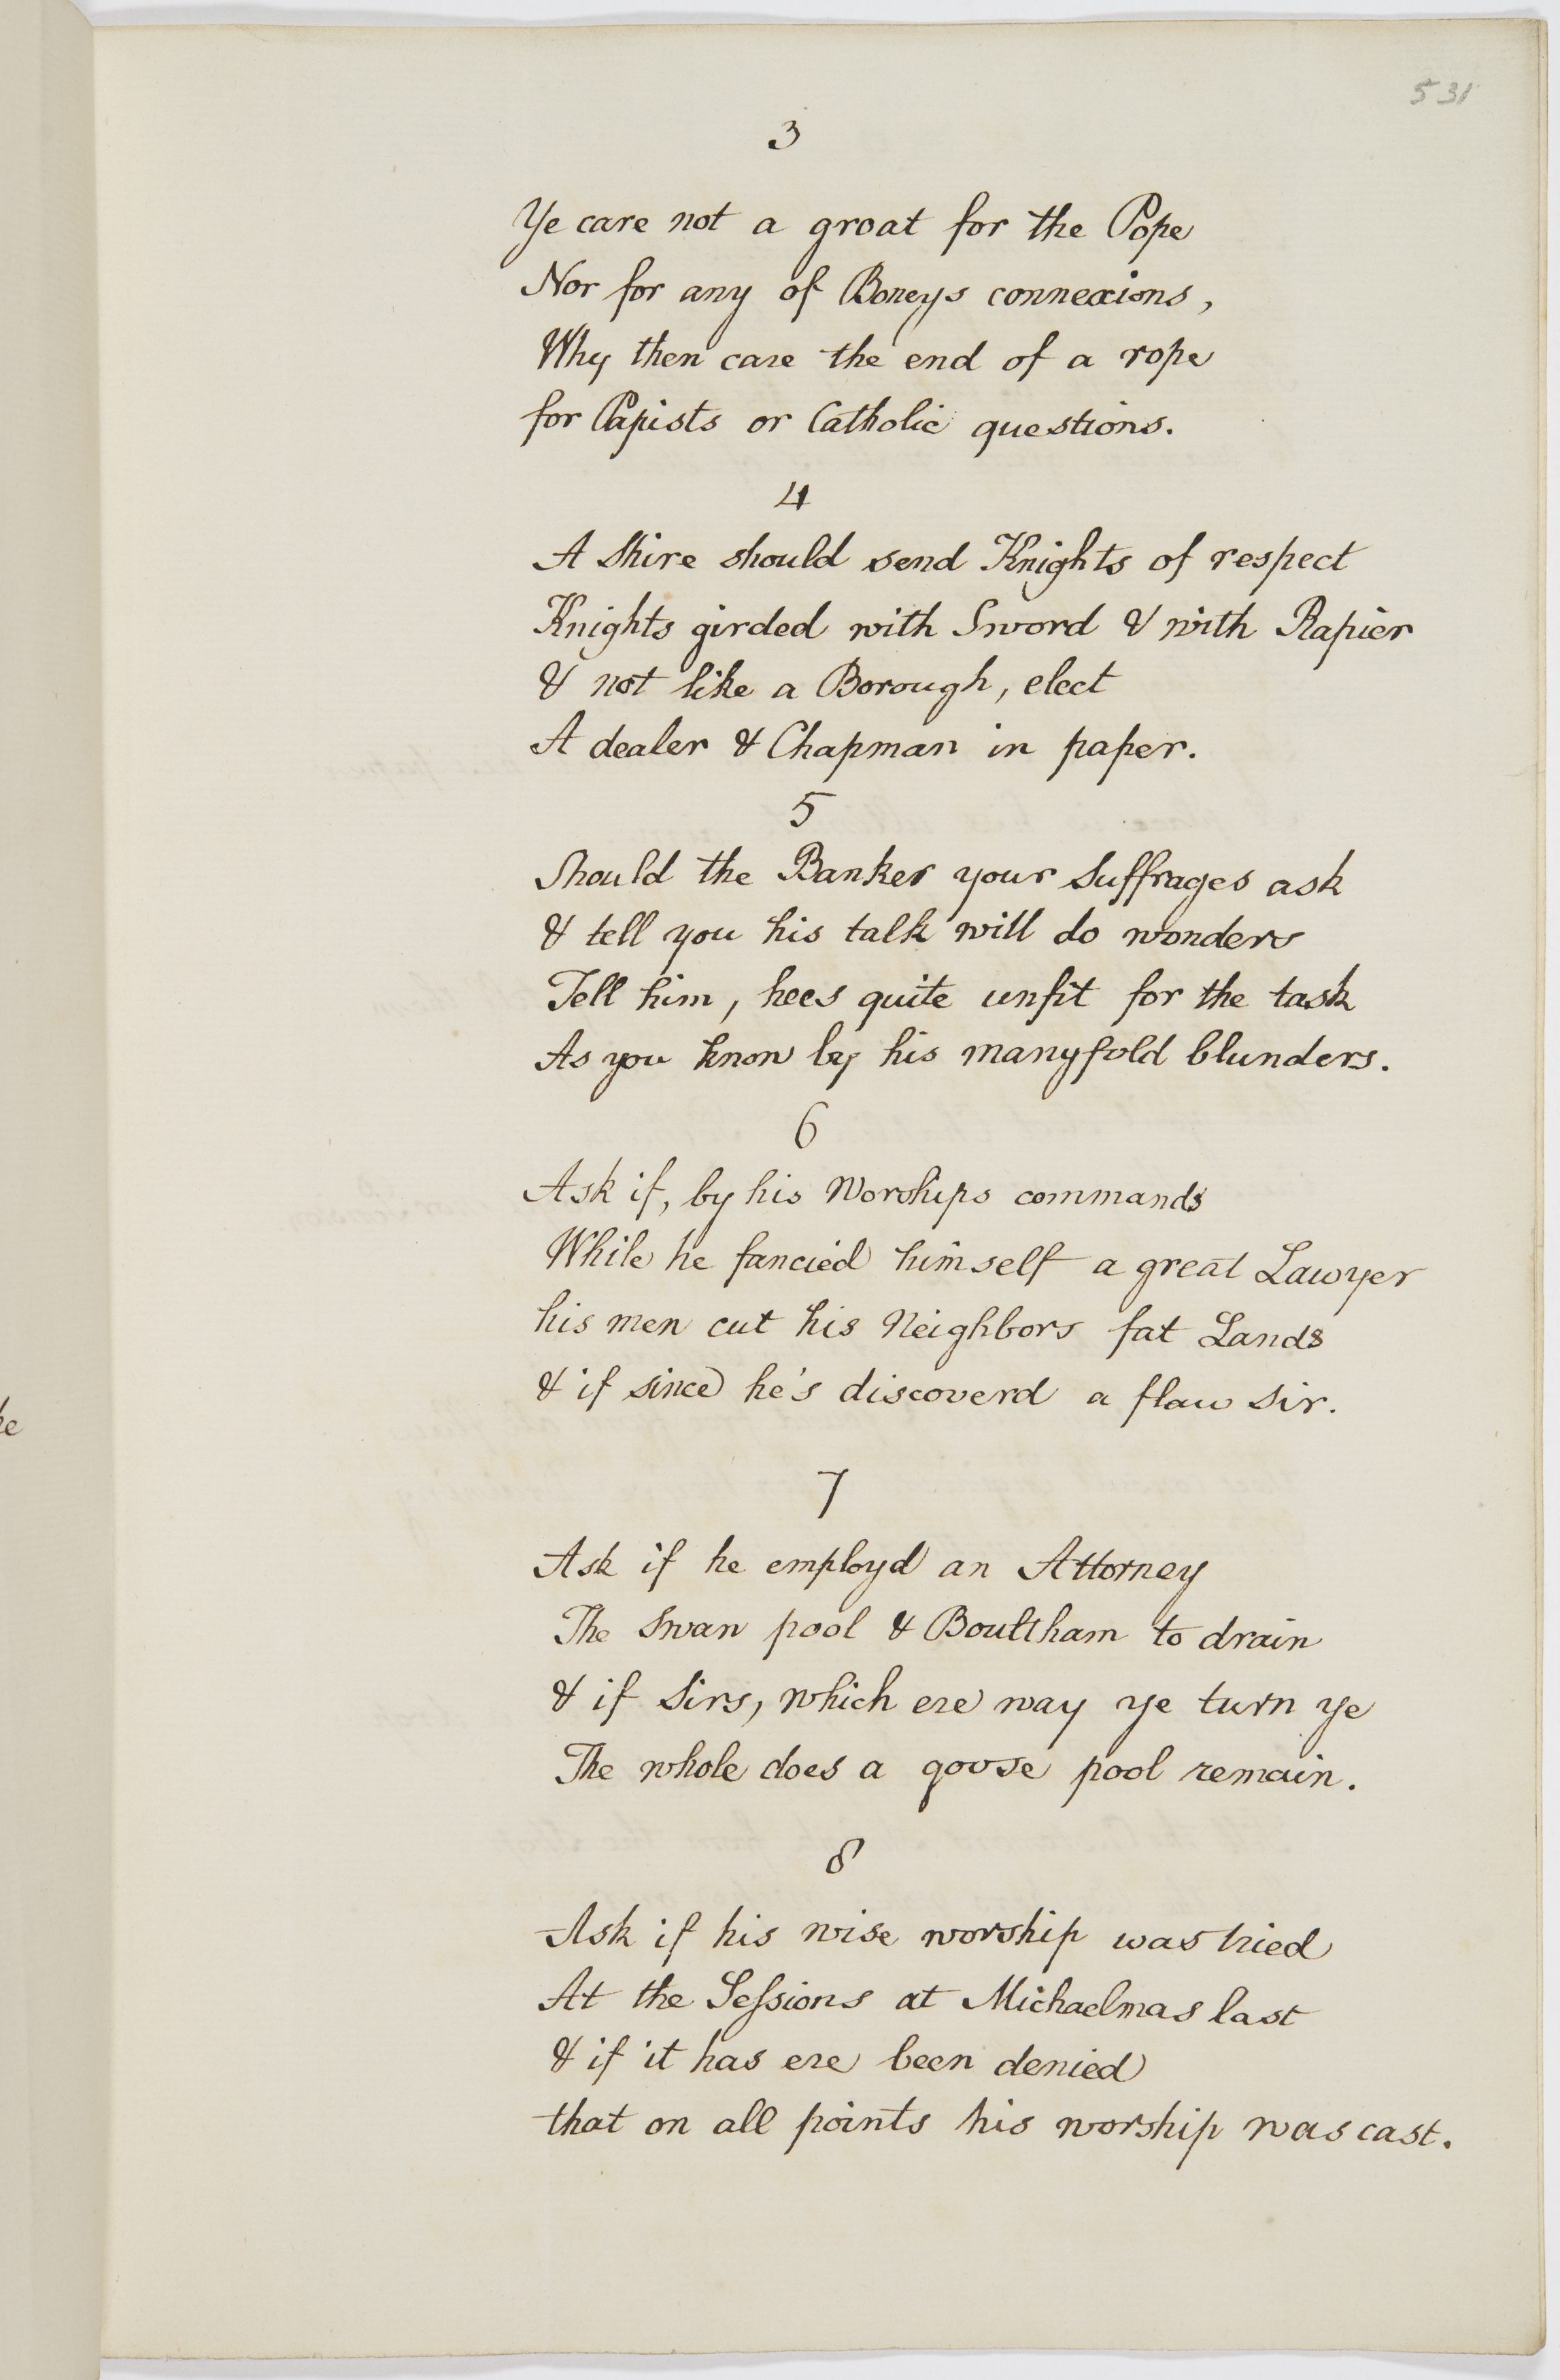 531
3
Ye care not a groat for the Pope
Nor for any of Boneys connexions,
Why then care the end of a rope
for Papists or Catholic questions.
4
A Shire should send Knights of respect
Knights girded with Sword & with Rapier
& not like a Borough, elect
A dealer & Chapman in paper.
5
Should the Banker your Suffrages ask
& tell you his talk will do wonders
Tell him, hees quite unfit for the task
As you know by his manyfold blunders.
6
Ask if, by his Worships commands
While he fancied himself a great Lawyer
his men cut his Neighbors fat Lands
& if since he's discoverd a flaw Sir.
7
Ask if he employd an Attorney
The Swan pool & Boultham to drain
& if Sirs, which ere way ye turn ye
The whole does a goose pool remain.
8
Ask if his wise worship was tried
At the Seſsions at Michaelmas last
& if it has ere been denied
that on all points his worship was cast.